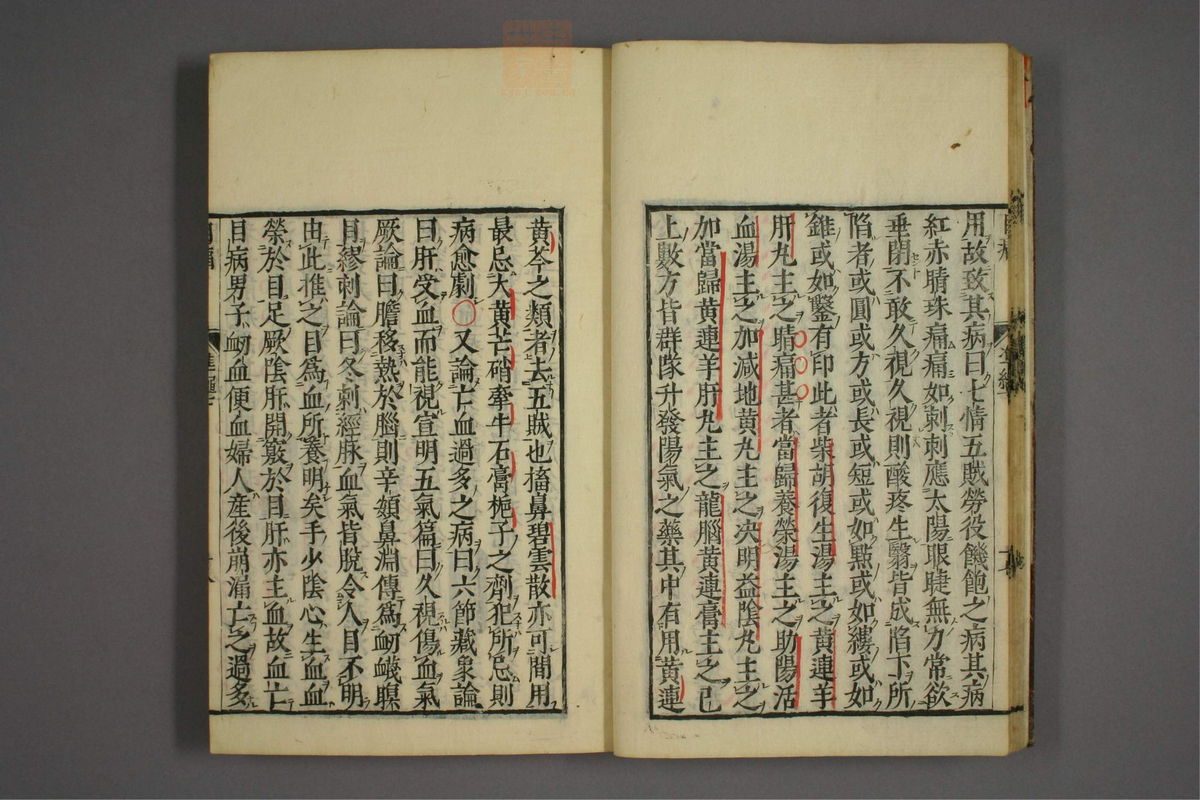 用故致其病曰七情五賊勞役饑飽之病其病
紅赤睛珠痛痛如刺刺應太陽眼睫無力常欲
垂閉不敢久視久視則酸疼生翳皆成陷下所
陷者或圓或方或長或短或如點或如縷或如
錐或如鑿有印此者柴胡復生湯主之黃連羊
肝丸主之睛痛甚者當歸養榮湯主之助陽活
血湯主之加減地黃丸主之决明益陰丸主之
加當歸黃連羊肝丸主之龍腦黃連膏主之已
上數方皆群隊升發陽氣之藥其中有用黃連
黃芩之類者去五賊也搐鼻碧雲散亦可間用
最忌大黃芒硝牽牛石膏梔子之劑犯所忌則
病愈劇○又論亡血過多之病曰六節藏象論
曰肝受血而能視宣明五氣篇曰久視傷血氣
厥論曰膽移熱於腦則辛頞鼻淵傳爲衄衊瞑
目繆刺論曰冬刺經脉血氣皆脫令人目不明
由此推之目爲血所養明矣手少陰心生血血
榮於目足厥陰肝開竅於目肝亦主血故血亡
目病男子衂血便血婦人産後崩漏亡之過多